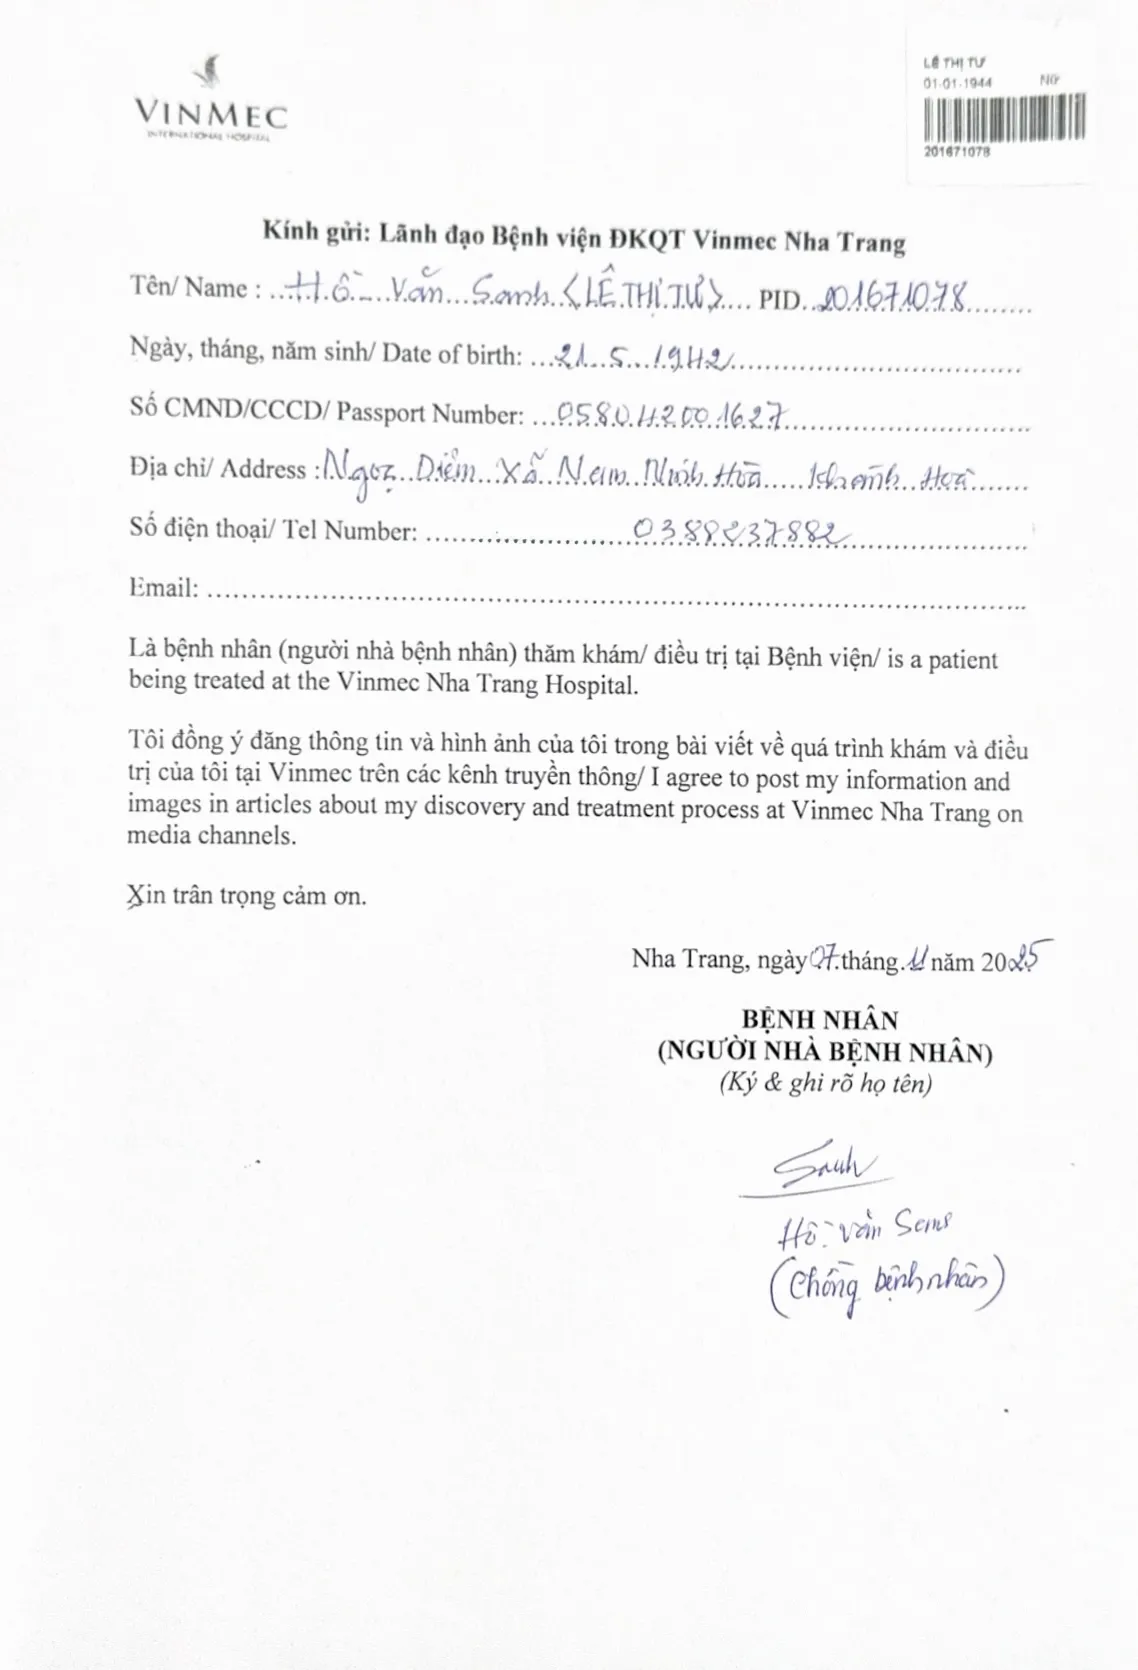 VINMEC
INTERNATIONAL HOSPITAL
LÊ THỊ TƯ
01-01-1944 Nữ
201671078
Kính gửi: Lãnh đạo Bệnh viện ĐKQT Vinmec Nha Trang
Tên/ Name : ...Hồ Văn Sanh (LÊ THỊ TƯ).... PID..201671078........
Ngày, tháng, năm sinh/ Date of birth: ...21...5...1942........................................
Số CMND/CCCD/ Passport Number: ...058042001627.................................
Địa chỉ/ Address : Ngọc Diêm Xã Nam Ninh Hoà ..... Khánh Hoà.......
Số điện thoại/ Tel Number: ............................. 0388237882 .........................
Email: .......................................................................................................
Là bệnh nhân (người nhà bệnh nhân) thăm khám/ điều trị tại Bệnh viện/ is a patient
being treated at the Vinmec Nha Trang Hospital.
Tôi đồng ý đăng thông tin và hình ảnh của tôi trong bài viết về quá trình khám và điều
trị của tôi tại Vinmec trên các kênh truyền thông/ I agree to post my information and
images in articles about my discovery and treatment process at Vinmec Nha Trang on
media channels.
Xin trân trọng cảm ơn.
Nha Trang, ngày 07.tháng.11 năm 2025
BỆNH NHÂN
(NGƯỜI NHÀ BỆNH NHÂN)
(Ký & ghi rõ họ tên)
Sanh
Hồ Văn Sanh
(Chồng bệnh nhân)